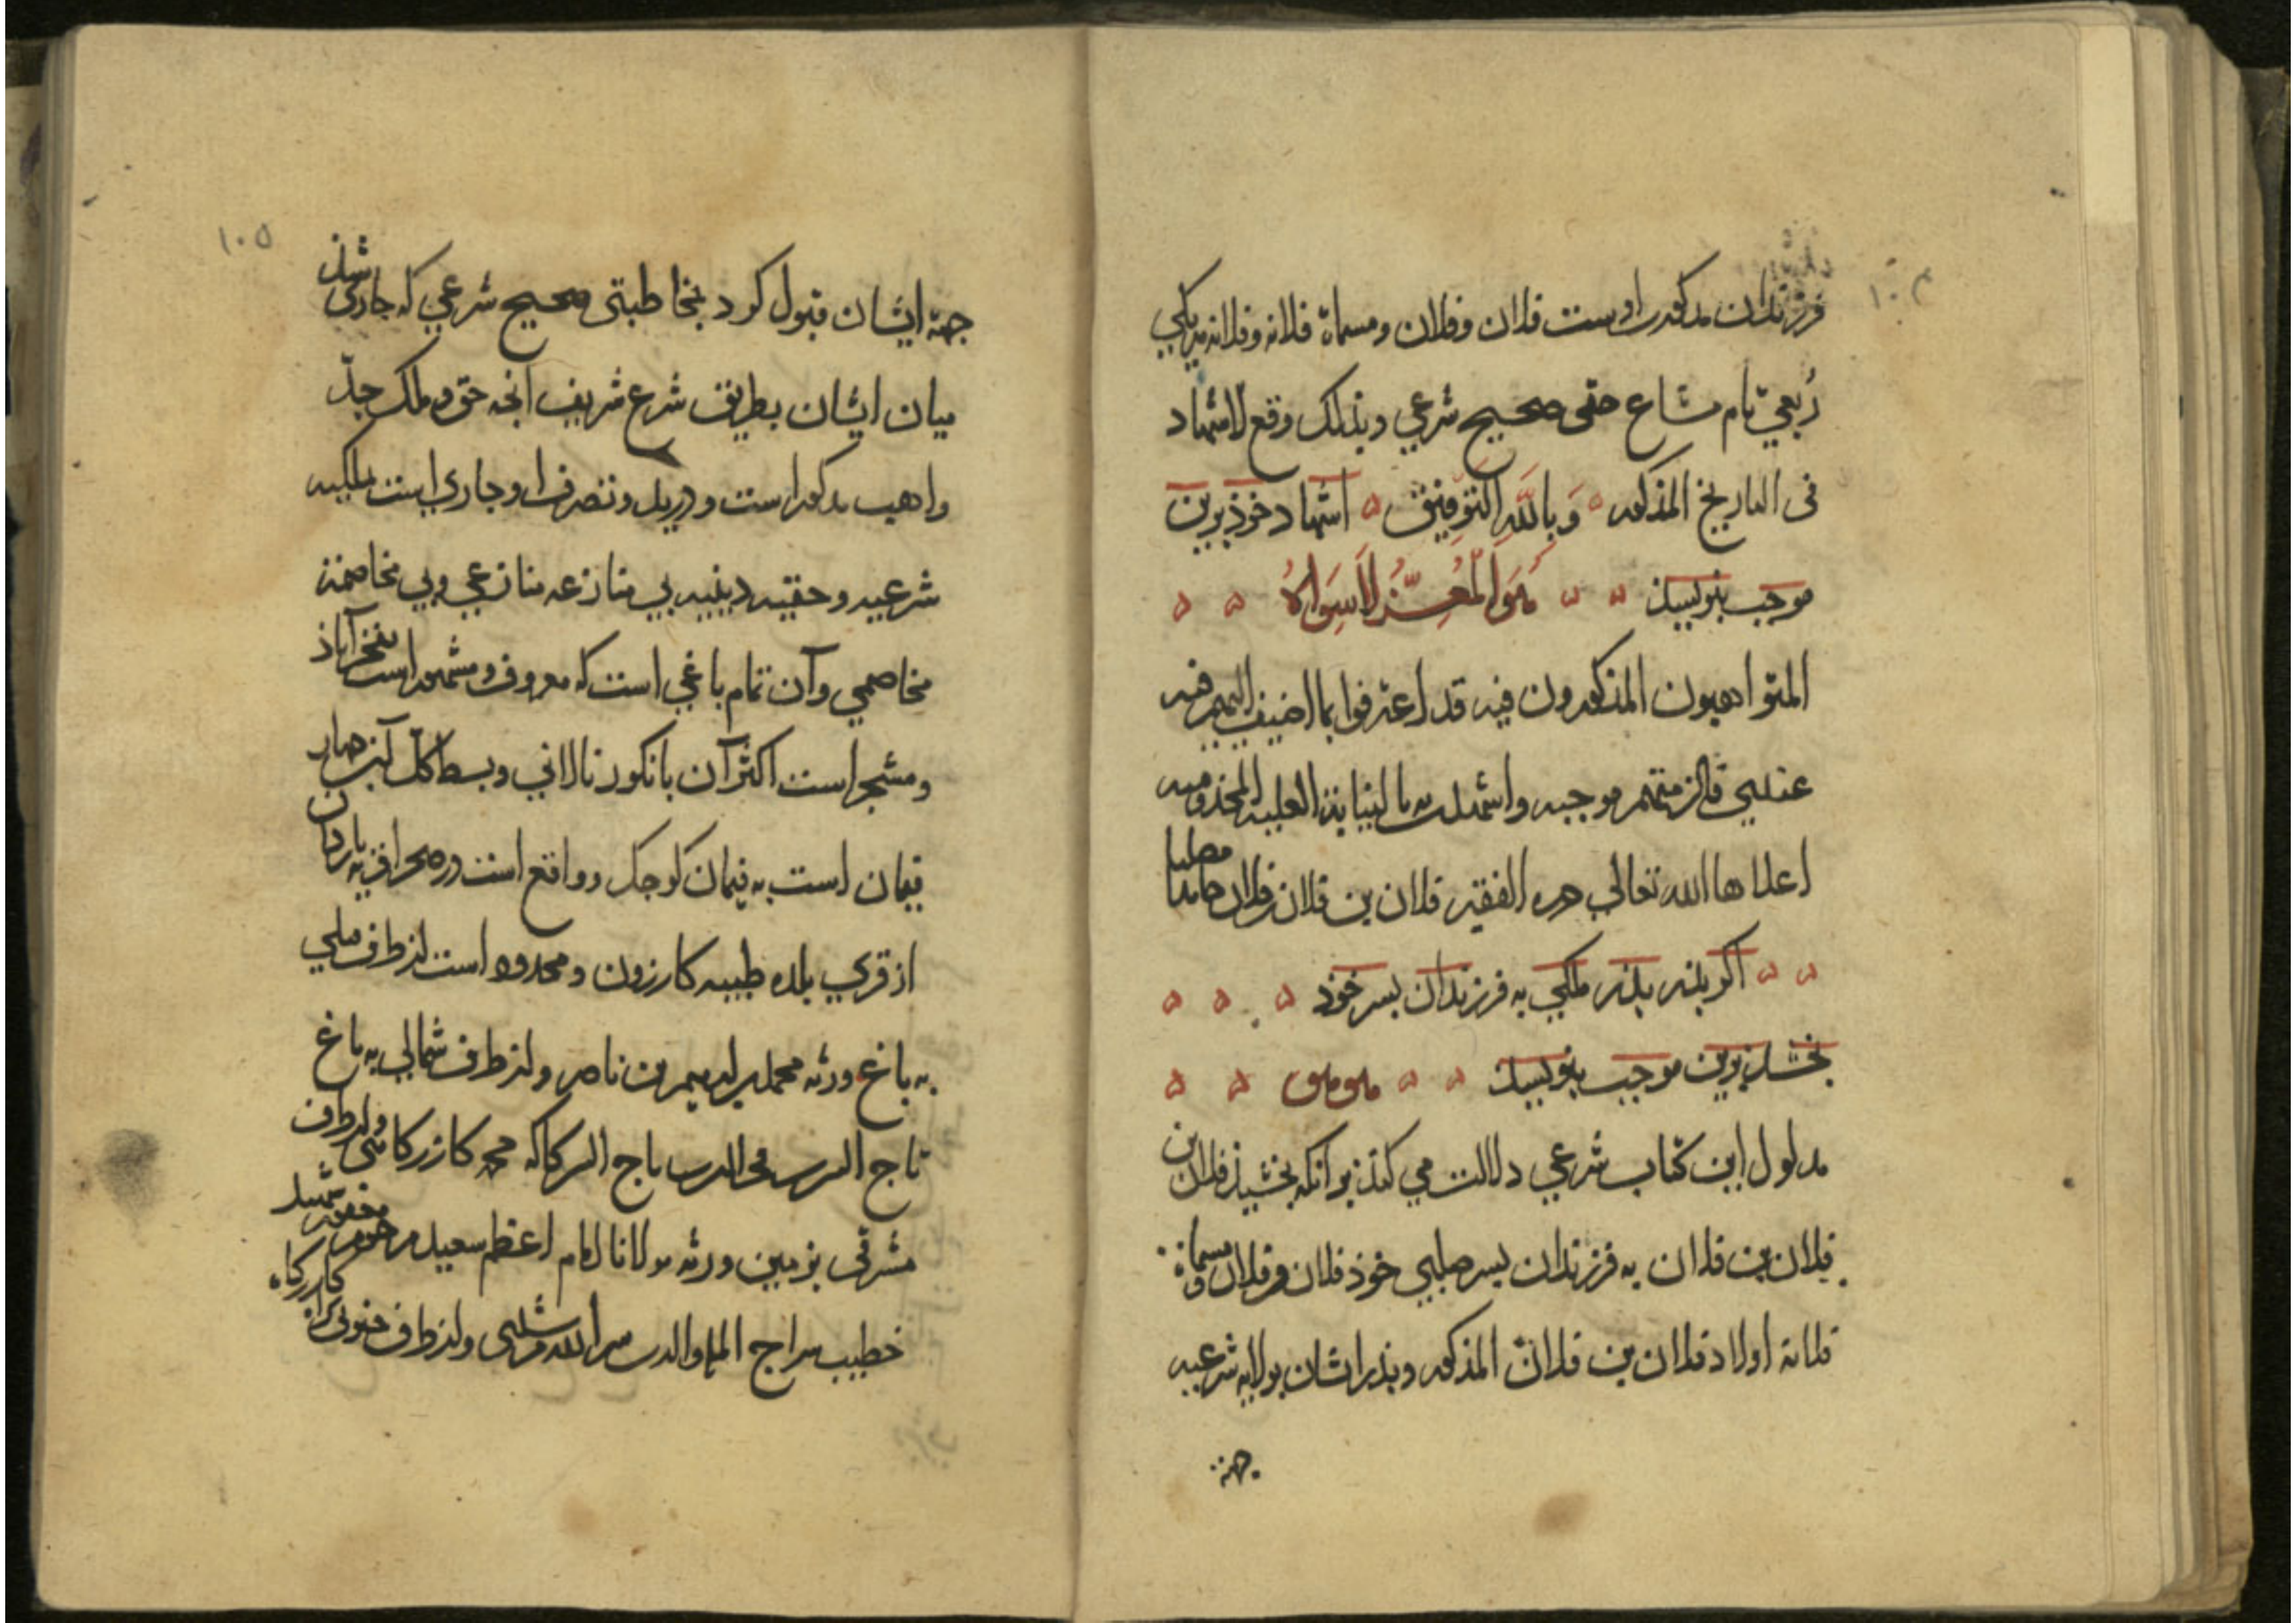 ۱۰۴
فرزندان مذکور اوست فلان و فلان و مسماة فلانه و فلانه هر یکی
رُبعيّ تام مشاع حقی صحیح شرعي وبذلك وقع الاشهاد
فی التاریخ المذکور وَبِاللَّهِ التَّوفِيق اشهاد خوذ برین
موجب بنویسد هُوَ الْمُعِزُّ لَا سِوَاهُ
المتواهبون المذکورون فیه قد اعترفوا بما اضیف الیهم فیه
عندي موجبه واشهدت بالنیابة العلیه المخدومیه
اعلاها الله تعالی وهو الفقیر فلان بن فلان بن فلان حامدا مصلیا
اکر بذر بذر ملکي به فرزندان بسر خوذ
بخشد برین موجب بنویسد هو هو
مدلول این کتاب شرعي دلالت مي کند بر آنکه بخشید فلان بن
فلان بن فلان به فرزندان بسر صلبي خوذ فلان و فلان و مسماة
فلانة اولاد فلان بن فلان المذکور وبذر ایشان بولایه شرعیه
جهة
۱۰۵
جهة ایشان قبول کرد بمخاطبتی صحیح شرعي که جاری شد
میان ایشان بطریق شرع شریف آنجه حق و ملک جدّ
واهب مذکور است و در ید و تصرف او جاري است بملکیه
شرعیه و حقیه دینیه بي منازعه منازعي وبي مخاصمة
مخاصمي وآن تمام باغي است که معروف و مشهور است بفخرآباذ
و مشجر است اکثر آن بانکور نالاني وبسط کل آن جهار
قیمان است به قیمان کوجک و واقع است در صحرا قریه
از قري بلده طیبه کازرون و محدود است از طرف قبلي
به باغ ورثه محمد بن ابراهیم بن ناصر و از طرف شمالي به باغ
تاج الدین محی الدین تاج الدین کاکه محمد کازرکاهی و از طرف
مشرقی بزمین ورثه مولانا امام اعظم سعید مرحوم مغفور شهید
خطیب سراج الملة والدین قرشی و از طرف جنوبی